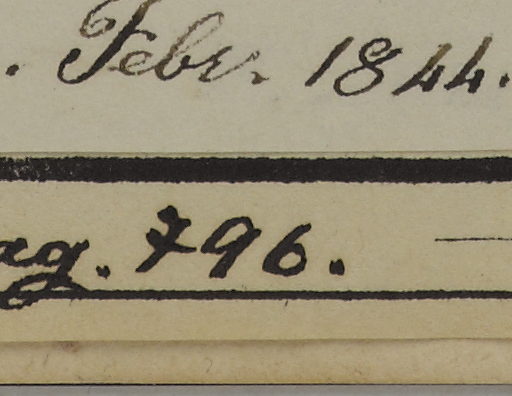 . Febr. 1844.
ag. 796.